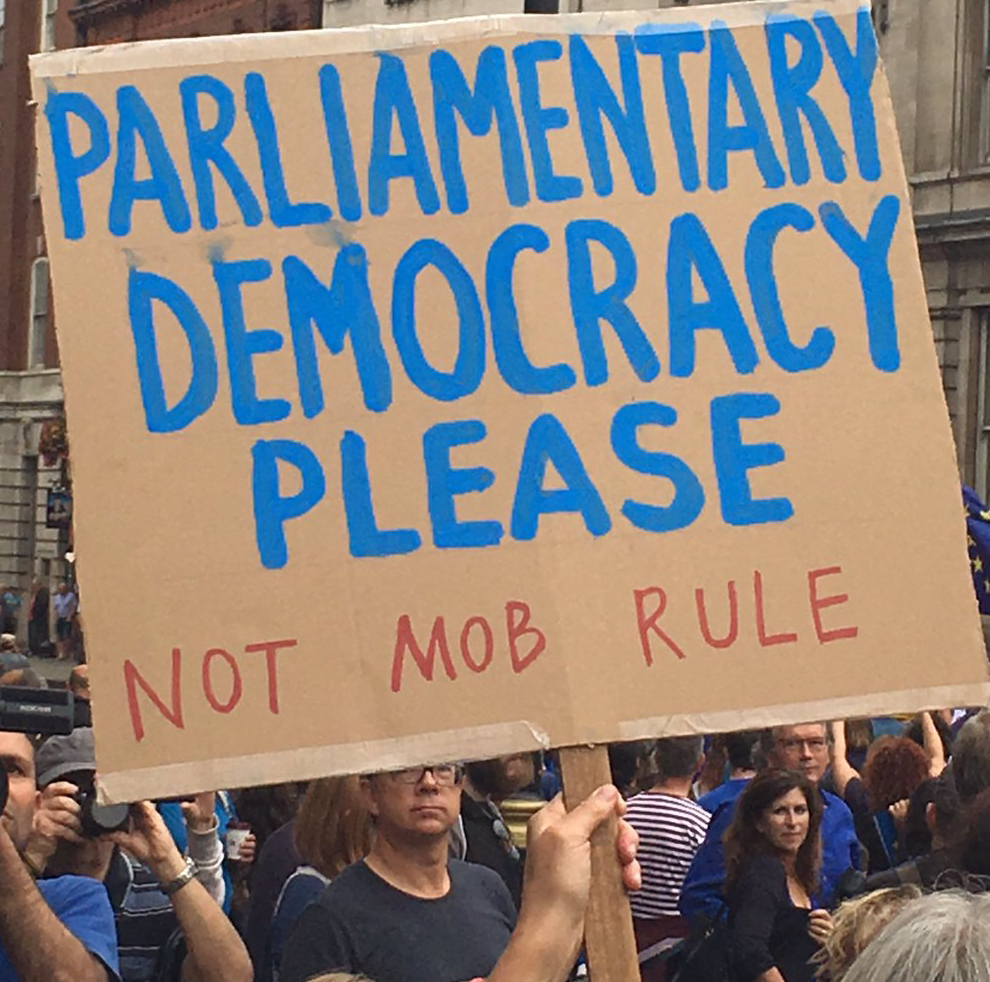 PARLIAMENTARY
DEMOCRACY
PLEASE
NOT MOB RULE